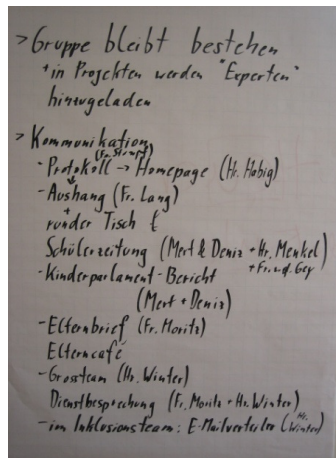 > Gruppe bleibt bestehen
+ in Projekten werden "Experten"
hinzugeladen
> Kommunikation
(Fr. Stumpf)
- Protokoll → Homepage (Hr. Habig)
- Aushang (Fr. Lang)
+
runder Tisch
Schülerzeitung (Mert & Deniz + Hr. Menkel
+ Fr. v. d. Gey)
- Kinderparlament-Bericht
(Mert + Deniz)
- Elternbrief (Fr. Moritz)
Elterncafé
- Grossteam (Hr. Winter)
Dienstbesprechung (Fr. Moritz + Hr. Winter)
- im Inklusionsteam: E-Mailverteiler (Hr. Winter)